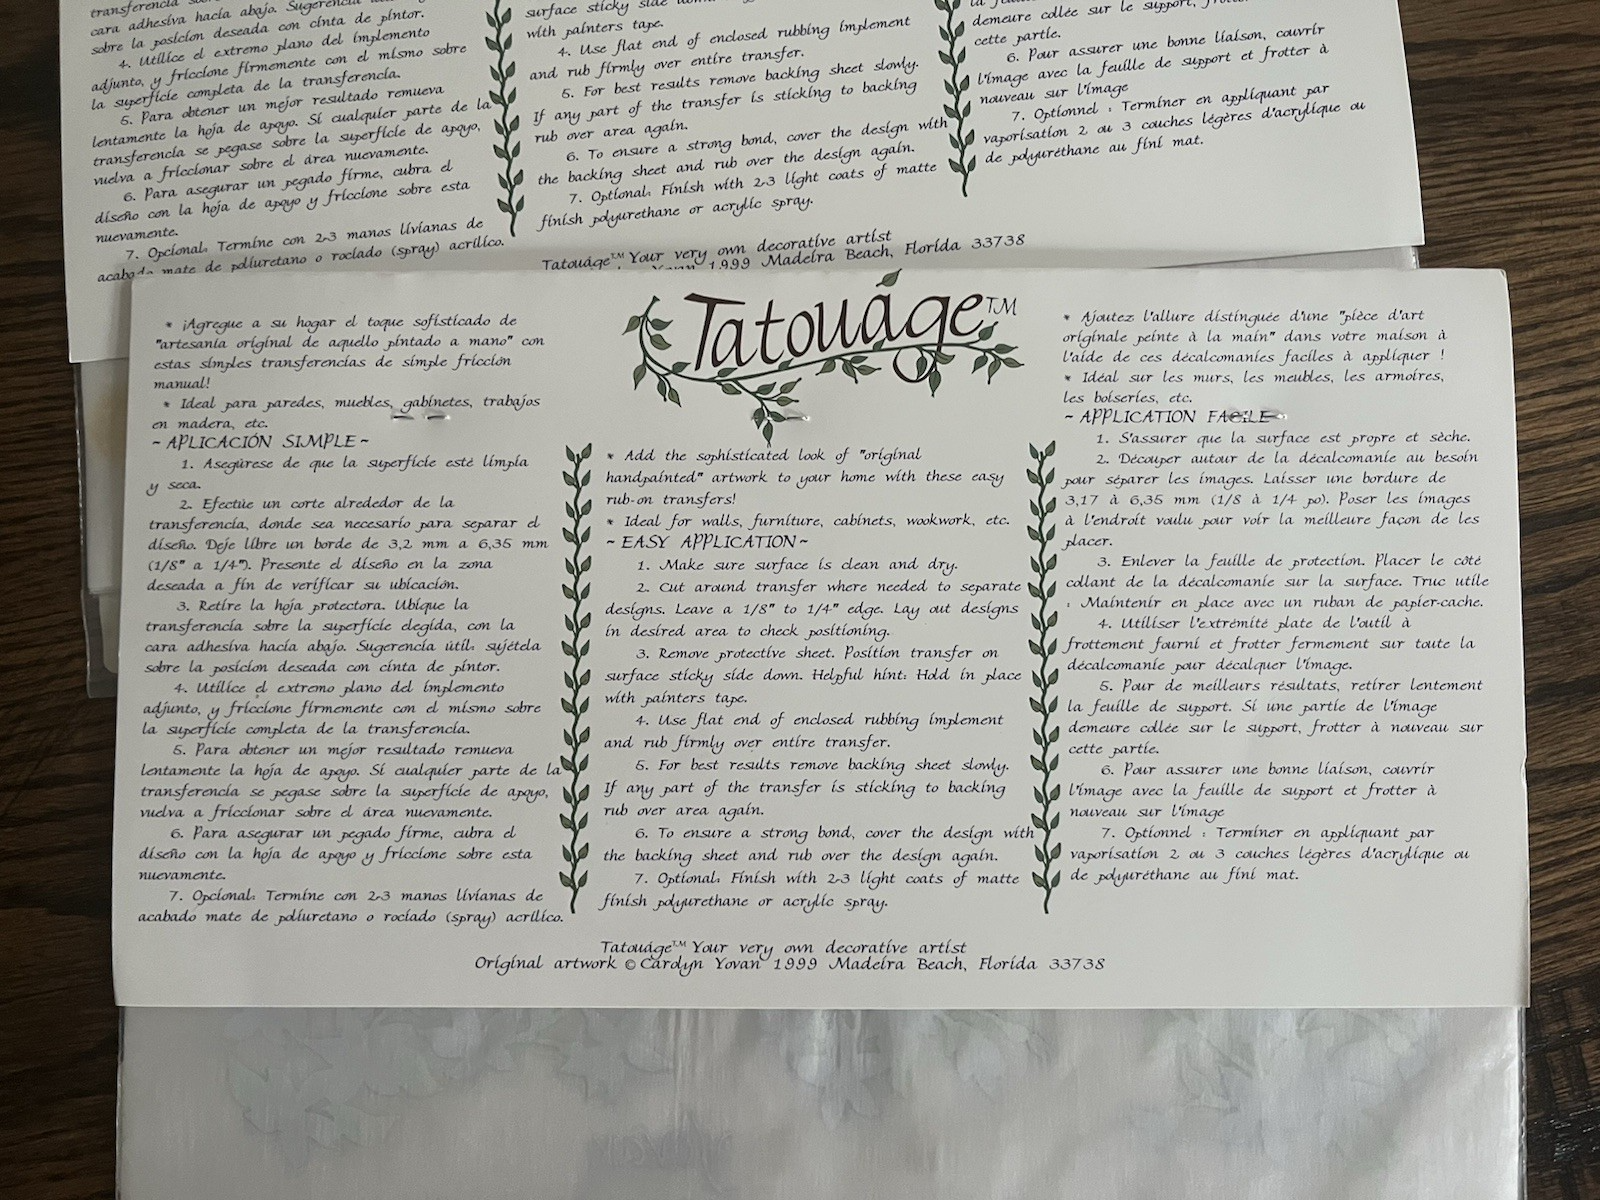 cara adhesiva hacía abajo.
sobre la posicion deseada con cinta de pintor.
4. Utilice el extremo plano del implemento
adjunto, y friccione firmemente con el mismo sobre
la superficie completa de la transferencia.
5. Para obtener un mejor resultado remueva
lentamente la hoja de apoyo. Si cualquier parte de la
transferencia se pegase sobre la superficie de apoyo,
vuelva a friccionar sobre el área nuevamente.
6. Para asegurar un pegado firme, cubra el
diseño con la hoja de apoyo y friccione sobre esta
nuevamente.
7. Opcional: Termine con 2-3 manos livianas de
acabado mate de poliuretano o rociado (spray) acrílico.
surface sticky side
with painters tape.
4. Use flat end of enclosed rubbing implement
and rub firmly over entire transfer.
5. For best results remove backing sheet slowly.
If any part of the transfer is sticking to backing
rub over area again.
6. To ensure a strong bond, cover the design with
the backing sheet and rub over the design again.
7. Optional: Finish with 2-3 light coats of matte
finish polyurethane or acrylic spray.
demeure collée sur le support,
cette partie.
6. Pour assurer une bonne liaison, couvrir
l'image avec la feuille de support et frotter à
nouveau sur l'image
7. Optionnel : Terminer en appliquant par
vaporisation 2 ou 3 couches légères d'acrylique ou
de polyuréthane au fini mat.
Tatouáge™ Your very own decorative artist
Yovan 1999 Madeira Beach, Florida 33738
Tatouáge™
* ¡Agregue a su hogar el toque sofisticado de
"artesania original de aquello pintado a mano" con
estas simples transferencias de simple fricción
manual!
* Ideal para paredes, muebles, gabinetes, trabajos
en madera, etc.
~ APLICACIÓN SIMPLE ~
1. Asegúrese de que la superficie esté limpia
y seca.
2. Efectúe un corte alrededor de la
transferencia, donde sea necesario para separar el
diseño. Deje libre un borde de 3,2 mm a 6,35 mm
(1/8" a 1/4"). Presente el diseño en la zona
deseada a fin de verificar su ubicación.
3. Retire la hoja protectora. Ubique la
transferencia sobre la superficie elegida, con la
cara adhesiva hacía abajo. Sugerencia útil: sujétela
sobre la posicion deseada con cinta de pintor.
4. Utilice el extremo plano del implemento
adjunto, y friccione firmemente con el mismo sobre
la superficie completa de la transferencia.
5. Para obtener un mejor resultado remueva
lentamente la hoja de apoyo. Si cualquier parte de la
transferencia se pegase sobre la superficie de apoyo,
vuelva a friccionar sobre el área nuevamente.
6. Para asegurar un pegado firme, cubra el
diseño con la hoja de apoyo y friccione sobre esta
nuevamente.
7. Opcional: Termine con 2-3 manos livianas de
acabado mate de poliuretano o rociado (spray) acrílico.
* Add the sophisticated look of "original
handpainted" artwork to your home with these easy
rub-on transfers!
* Ideal for walls, furniture, cabinets, wookwork, etc.
~ EASY APPLICATION~
1. Make sure surface is clean and dry.
2. Cut around transfer where needed to separate
designs. Leave a 1/8" to 1/4" edge. Lay out designs
in desired area to check positioning.
3. Remove protective sheet. Position transfer on
surface sticky side down. Helpful hint: Hold in place
with painters tape.
4. Use flat end of enclosed rubbing implement
and rub firmly over entire transfer.
5. For best results remove backing sheet slowly.
If any part of the transfer is sticking to backing
rub over area again.
6. To ensure a strong bond, cover the design with
the backing sheet and rub over the design again.
7. Optional: Finish with 2-3 light coats of matte
finish polyurethane or acrylic spray.
* Ajoutez l'allure distinguée d'une "pièce d'art
originale peinte à la main" dans votre maison à
l'aide de ces décalcomanies faciles à appliquer !
* Idéal sur les murs, les meubles, les armoires,
les boiseries, etc.
~ APPLICATION FACILE ~
1. S'assurer que la surface est propre et sèche.
2. Découper autour de la décalcomanie au besoin
pour séparer les images. Laisser une bordure de
3,17 à 6,35 mm (1/8 à 1/4 po). Poser les images
à l'endroit voulu pour voir la meilleure façon de les
placer.
3. Enlever la feuille de protection. Placer le côté
collant de la décalcomanie sur la surface. Truc utile
: Maintenir en place avec un ruban de papier-cache.
4. Utiliser l'extrémité plate de l'outil à
frottement fourni et frotter fermement sur toute la
décalcomanie pour décalquer l'image.
5. Pour de meilleurs résultats, retirer lentement
la feuille de support. Si une partie de l'image
demeure collée sur le support, frotter à nouveau sur
cette partie.
6. Pour assurer une bonne liaison, couvrir
l'image avec la feuille de support et frotter à
nouveau sur l'image
7. Optionnel : Terminer en appliquant par
vaporisation 2 ou 3 couches légères d'acrylique ou
de polyuréthane au fini mat.
Tatouáge™ Your very own decorative artist
Original artwork © Carolyn Yovan 1999 Madeira Beach, Florida 33738